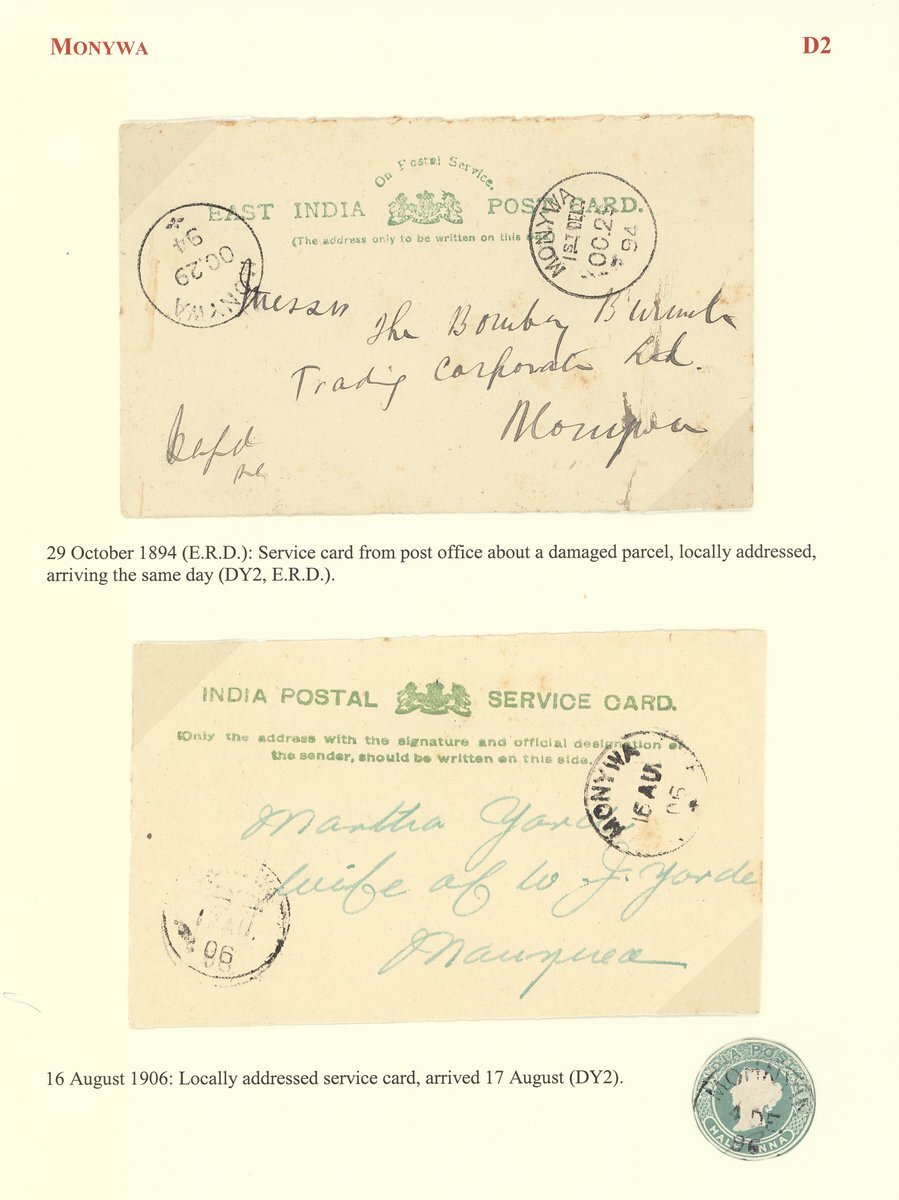 MONYWA
D2
On Postal Service.
EAST INDIA POST CARD.
(The address only to be written on this side.)
MONYWA
OC 29
94
MONYWA
1ST DELY
OC 29
94
Messrs
The Bombay Burmah
Trading Corporation Ltd.
Monywa
29 October 1894 (E.R.D.): Service card from post office about a damaged parcel, locally addressed,
arriving the same day (DY2, E.R.D.).
INDIA POSTAL SERVICE CARD.
(Only the address with the signature and official designation of
the sender, should be written on this side.
MONYWA
16 AU
06
Martha Yorde
wife of W J. Yorde
17 AU
06
16 August 1906: Locally addressed service card, arrived 17 August (DY2).
INDIA POSTAGE
4 DE
96
HALF ANNA